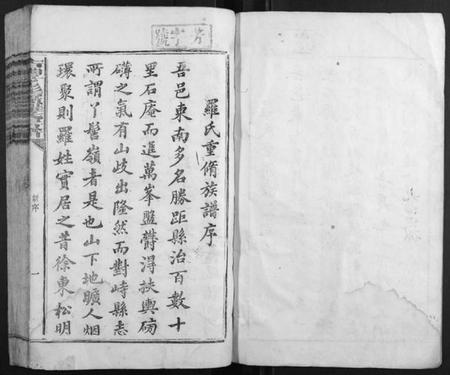 羅氏重脩族譜序
吾邑東南多名勝距縣治百數十
里石庵而進萬峯盤欝淂扶輿磅
礡之氣有山歧出隆然而對峙縣志
所謂丫髻嶺者是也山下地曠人烟
環聚則羅姓實居之昔徐東松明
序
一
字號